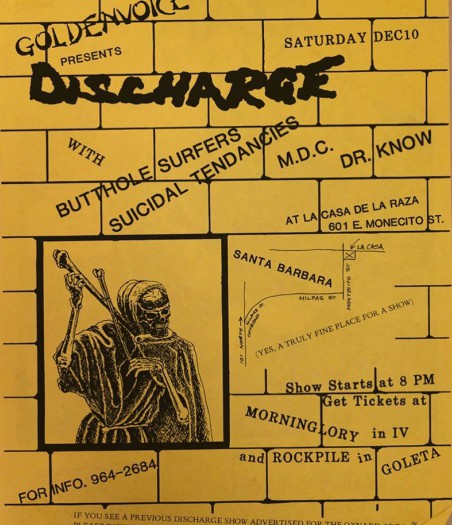 GOLDENVOICE
PRESENTS
SATURDAY DEC10
DISCHARGE
WITH
BUTTHOLE SURFERS
SUICIDAL TENDANCIES
M.D.C. DR. KNOW
AT LA CASA DE LA RAZA
601 E. MONECITO ST.
LA CASA
SANTA BARBARA
MILPAS ST.
101 NORTH
(YES, A TRULY FINE PLACE FOR A SHOW)
Show Starts at 8 PM
Get Tickets at
MORNINGLORY in IV
and ROCKPILE in GOLETA
FOR INFO. 964-2684
IF YOU SEE A PREVIOUS DISCHARGE SHOW ADVERTISED FOR THE OXNARD